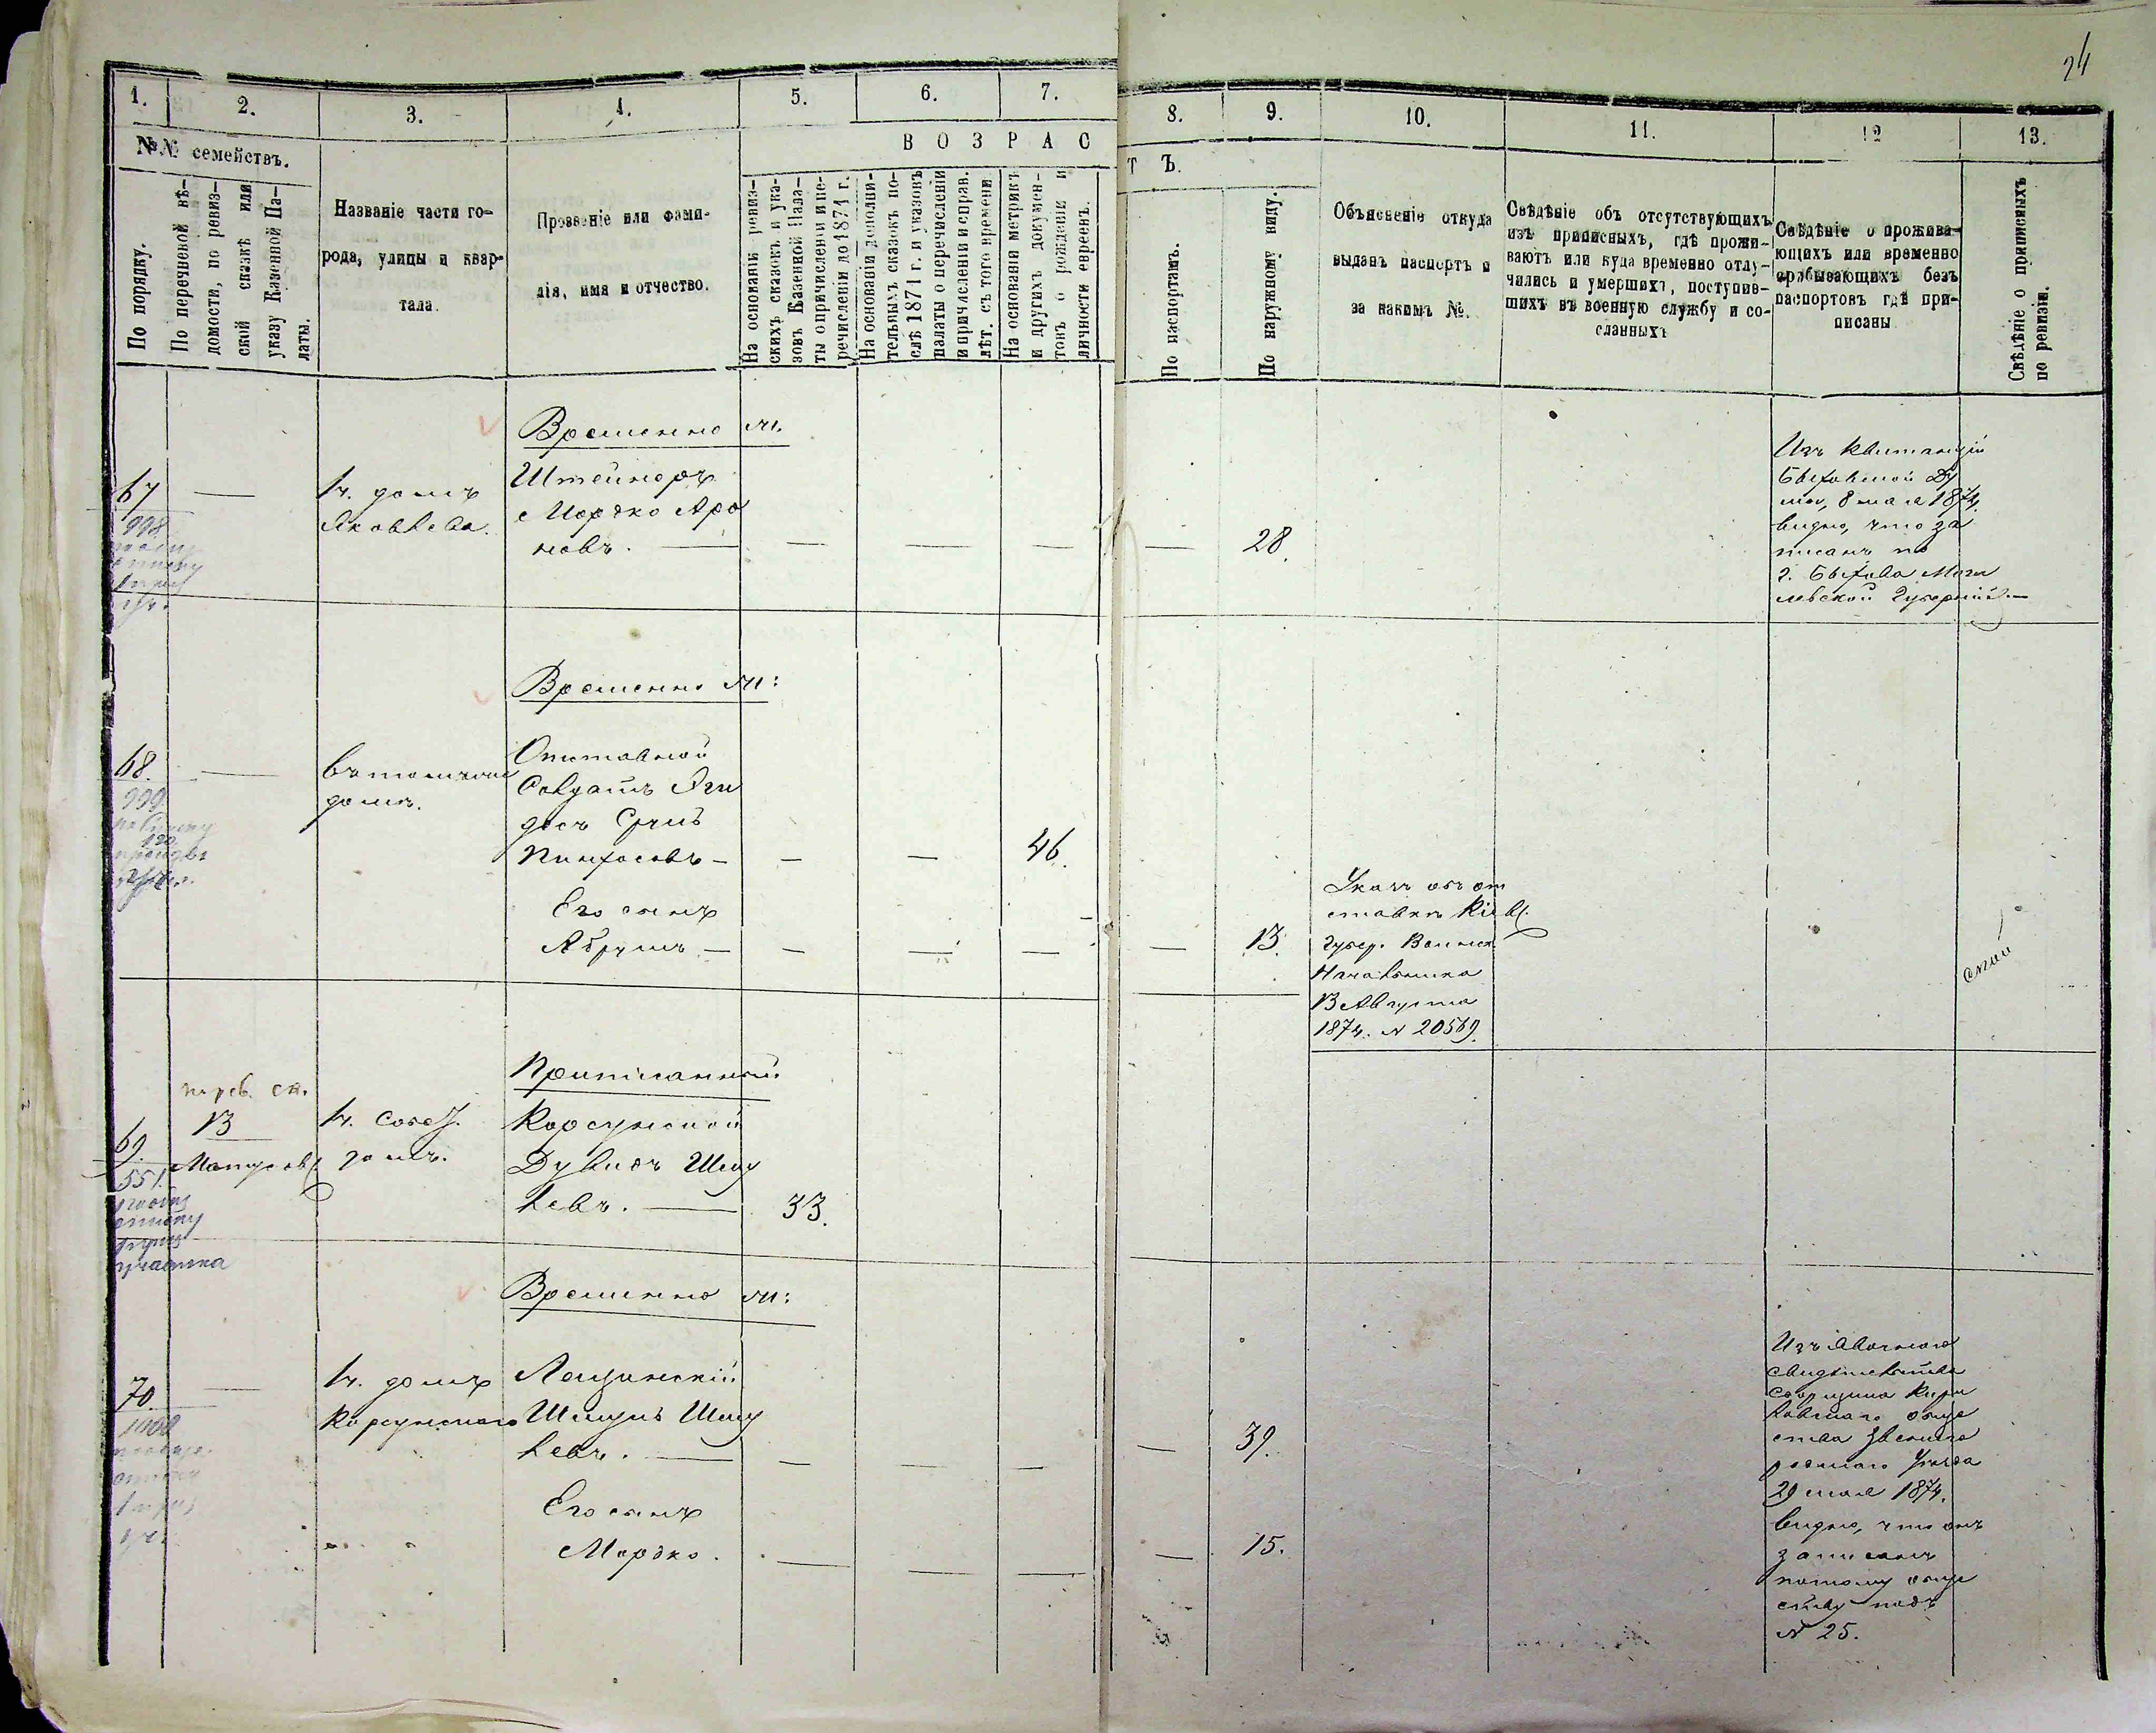 24
1. 2. 3. 4. 5. 6. 7. 8. 9. 10. 11. 12 13.
№№ семействъ.
В О З Р А С Т Ъ.
По порядку.
По перечневой вѣ-
домости, по ревиз-
ской сказкѣ или
указу Казенной Па-
латы.
Названіе части го-
рода, улицы и квар-
тала.
Прозвеніе или фами-
лія, имя и отчество.
На основаніи ревиз-
скихъ сказокъ и ука-
зовъ Казенной Пала-
ты о причисленіи и пе-
речисленіи до 1871 г.
На основаніи дополни-
тельныхъ сказокъ по-
слѣ 1871 г. и указовъ
палаты о перечисленіи
и причисленіи и справ.
лѣт. съ того времени
На основаніи метрикъ
и другихъ докумен-
товъ о рожденіи и
личности евреевъ.
По паспортамъ.
По наружному виду.
Объясненіе откуда
выданъ паспортъ и
за какимъ №.
Свѣдѣніе объ отсутствующихъ
изъ приписныхъ, гдѣ прожи-
ваютъ или куда временно отлу-
чились и умершихъ, поступив-
шихъ въ военную службу и со-
сланныхъ
Свѣдѣніе о прожива-
ющихъ или временно
пребывающихъ безъ
паспортовъ гдѣ при-
писаны
Свѣдѣніе о приписныхъ
по ревизіи.
Временно м.
67 — 1ч. домъ
Яковлева.
998
Штейнеръ
Мордко Аро
новъ. — — — — — 28.
Изъ квитанціи
Быховской Ду
мы, 8 мая 1874.
видно, что за
писанъ по
г. Быхова Моги
левской Губерніи. —
Временно м:
68. — въ томъ же
домѣ.
999
Отставной
Солдатъ
Срулъ
Пинхосовъ — — — 46.
Его сынъ
Абрумъ — — — — — 13.
Указъ объ от
ставкѣ Кіевс.
Губер. Воинск.
Начальника
13 Августа
1874. № 20569.
Приписанный.
69. 13 1ч. собст.
домъ.
551.
Корсунской
Дувидъ Шму
левъ. — 33.
участка
Временно м:
70. — 1ч. домъ
Корсунскаго
1000
Лещинскій
Шмулъ Шму
левъ. — — — — — 39.
Его сынъ
Мордко. — — — — 15.
свидѣтельства
сборщика Кири
ловскаго обще
ства Звениго
родскаго Уѣзда
29 мая 1874.
видно, что онъ
записанъ
потому обще
ству подъ
№ 25.